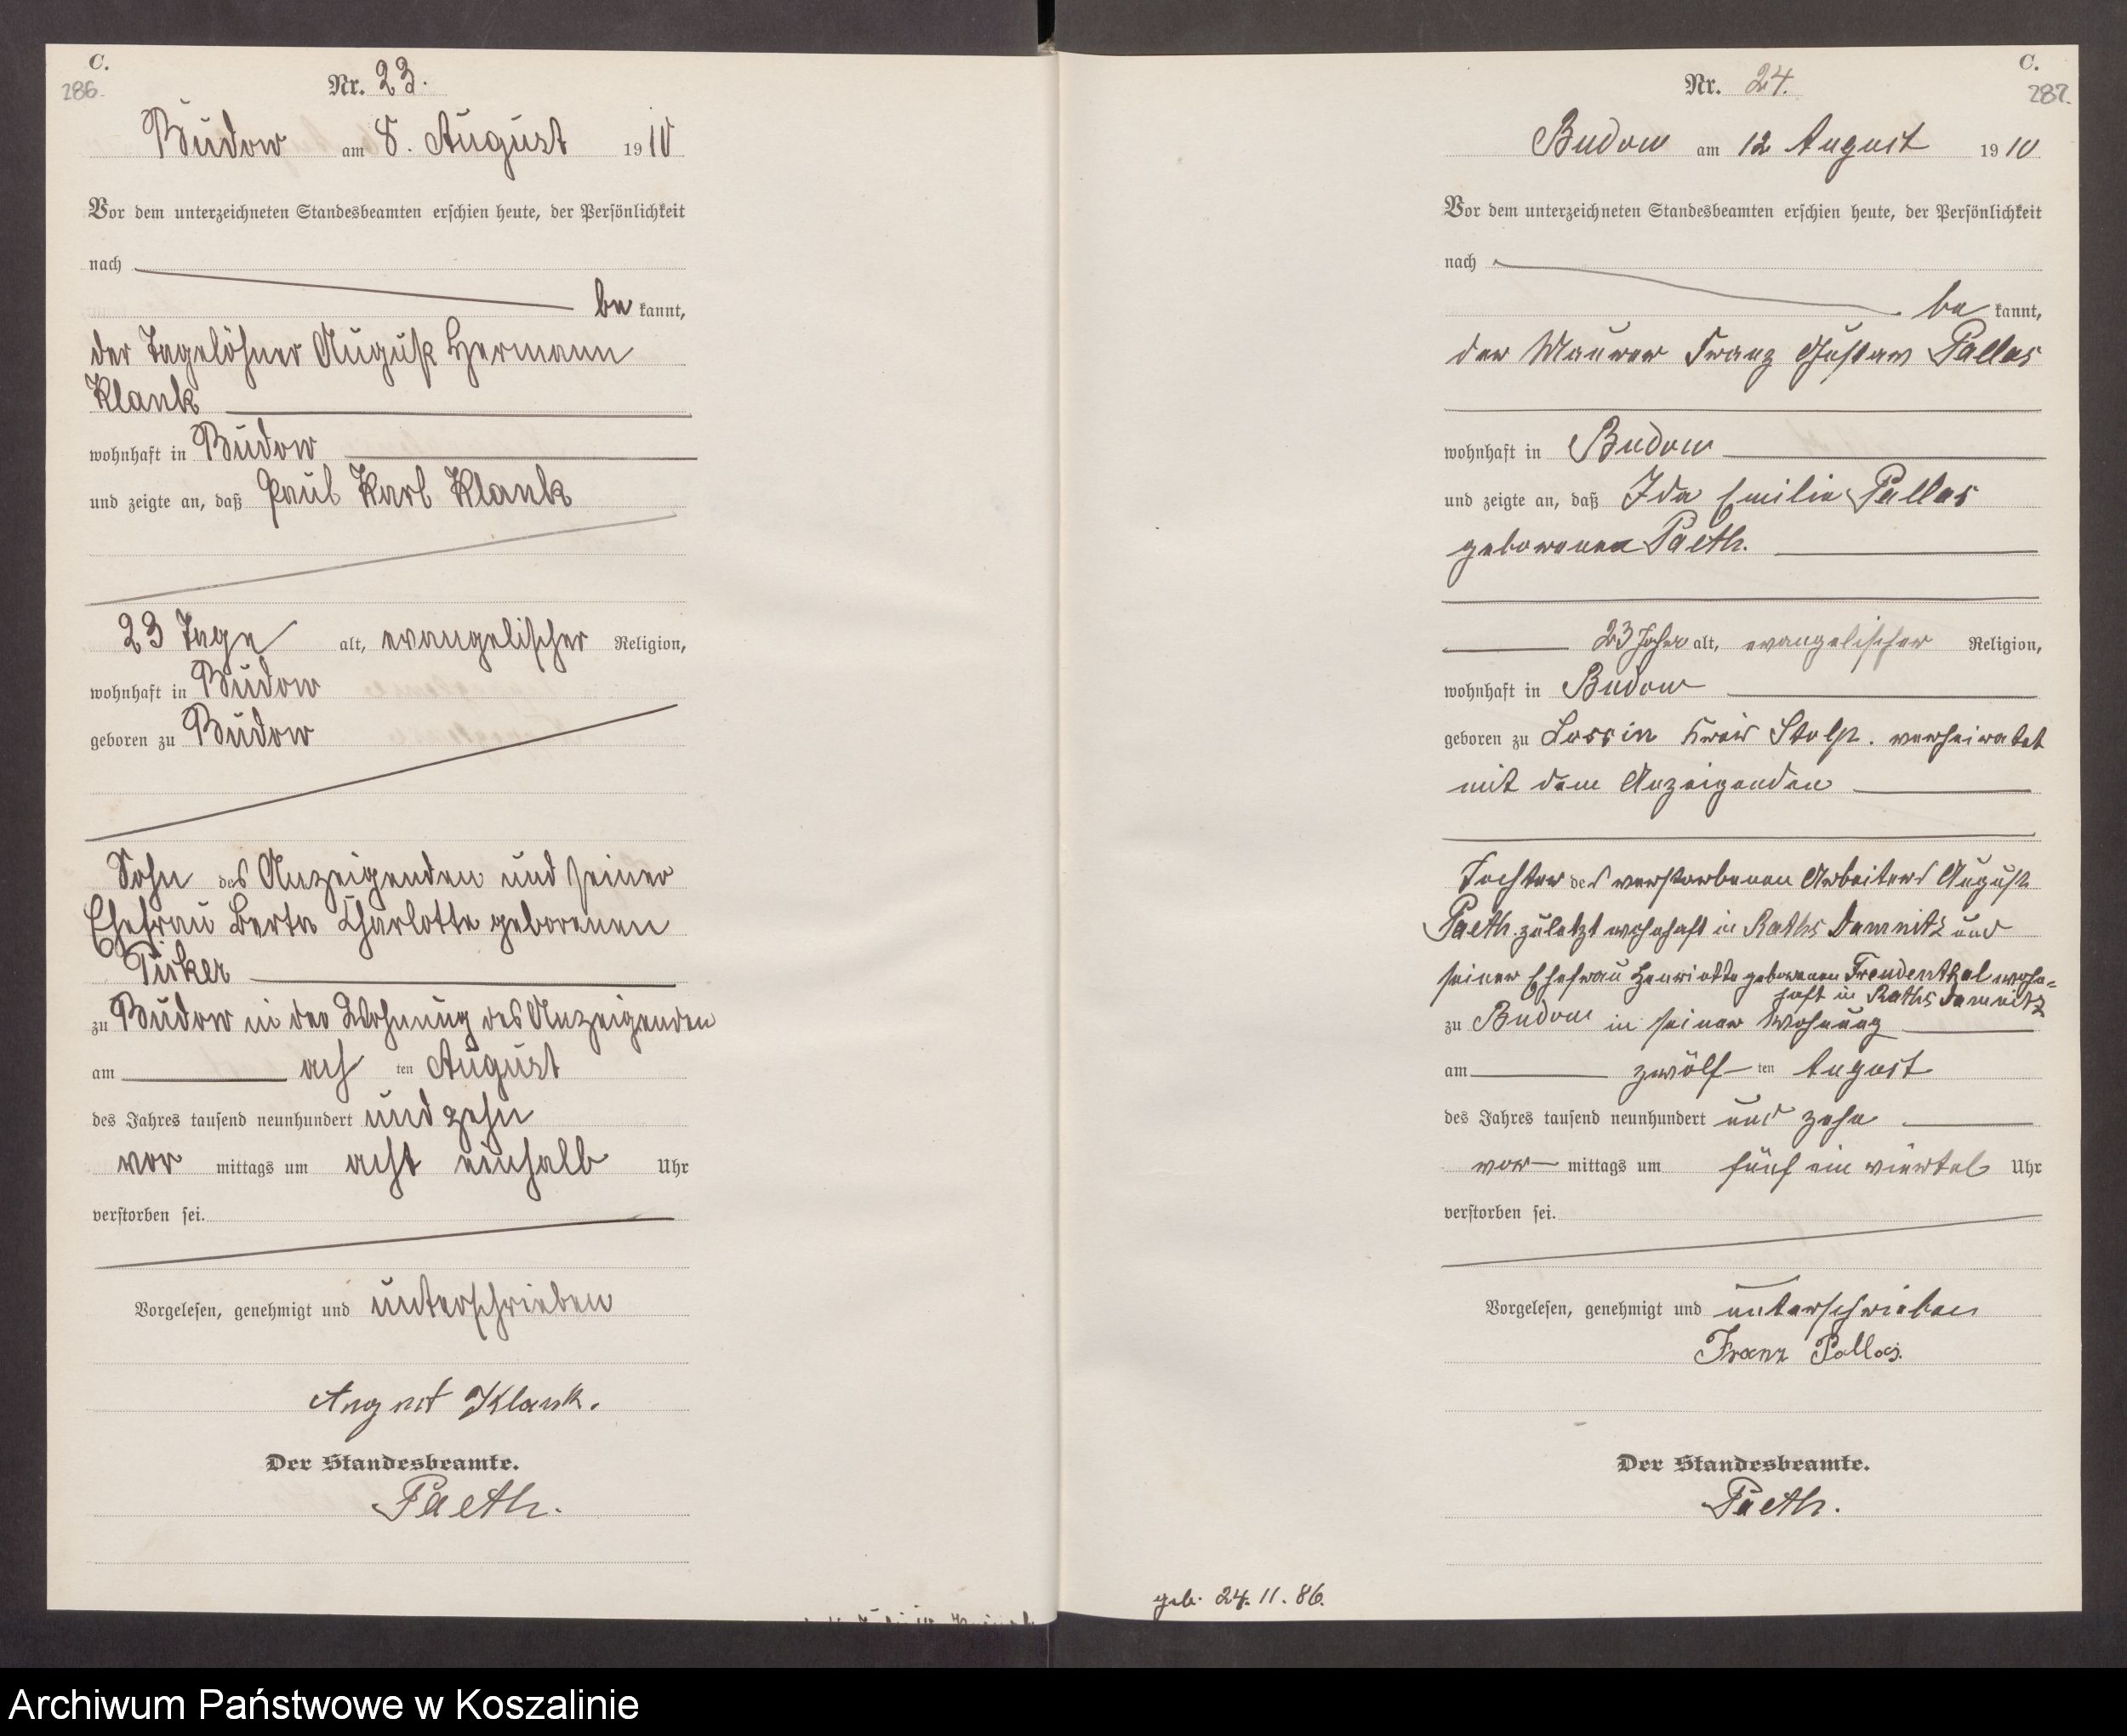 C.
286.
Nr. 23.
Budow am 8. August 1910
Vor dem unterzeichneten Standesbeamten erschien heute, der Persönlichkeit
nach
be kannt,
der Tagelöhner August Hermann
Klank
wohnhaft in Budow
und zeigte an, daß Paul Karl Klank
23 Tage alt, evangelischer Religion,
wohnhaft in Budow
geboren zu Budow
Sohn des Anzeigenden und seiner
Ehefrau Berta Charlotte geborenen
Pirker
zu Budow in der Wohnung des Anzeigenden
am ach ten August
des Jahres tausend neunhundert und zehn
vor mittags um acht einhalb Uhr
verstorben sei.
Vorgelesen, genehmigt und unterschrieben
August Klank.
Der Standesbeamte.
Paeth.
C.
287.
Nr. 24.
Budow am 12 August 1910
Vor dem unterzeichneten Standesbeamten erschien heute, der Persönlichkeit
nach
be kannt,
der Maurer Franz Gustav Pallas
wohnhaft in Budow
und zeigte an, daß Ida Emilie Pallas
geborenen Paeth.
23 Jahre alt, evangelischer Religion,
wohnhaft in Budow
geboren zu Lossin Kreis Stolp. verheiratet
mit dem Anzeigenden
Tochter des verstorbenen Arbeiters August
Paeth. zuletzt wohnhaft in Raths Damnitz und
seiner Ehefrau Henriette geborenen Freudenthal wohn=
haft in Raths Damnitz
zu Budow in seiner Wohnung
am zwölf ten August
des Jahres tausend neunhundert und zehn
vor mittags um fünf ein viertel Uhr
verstorben sei.
Vorgelesen, genehmigt und unterschrieben
Franz Pallas.
Der Standesbeamte.
Paeth.
geb. 24. 11. 86.
Archiwum Państwowe w Koszalinie